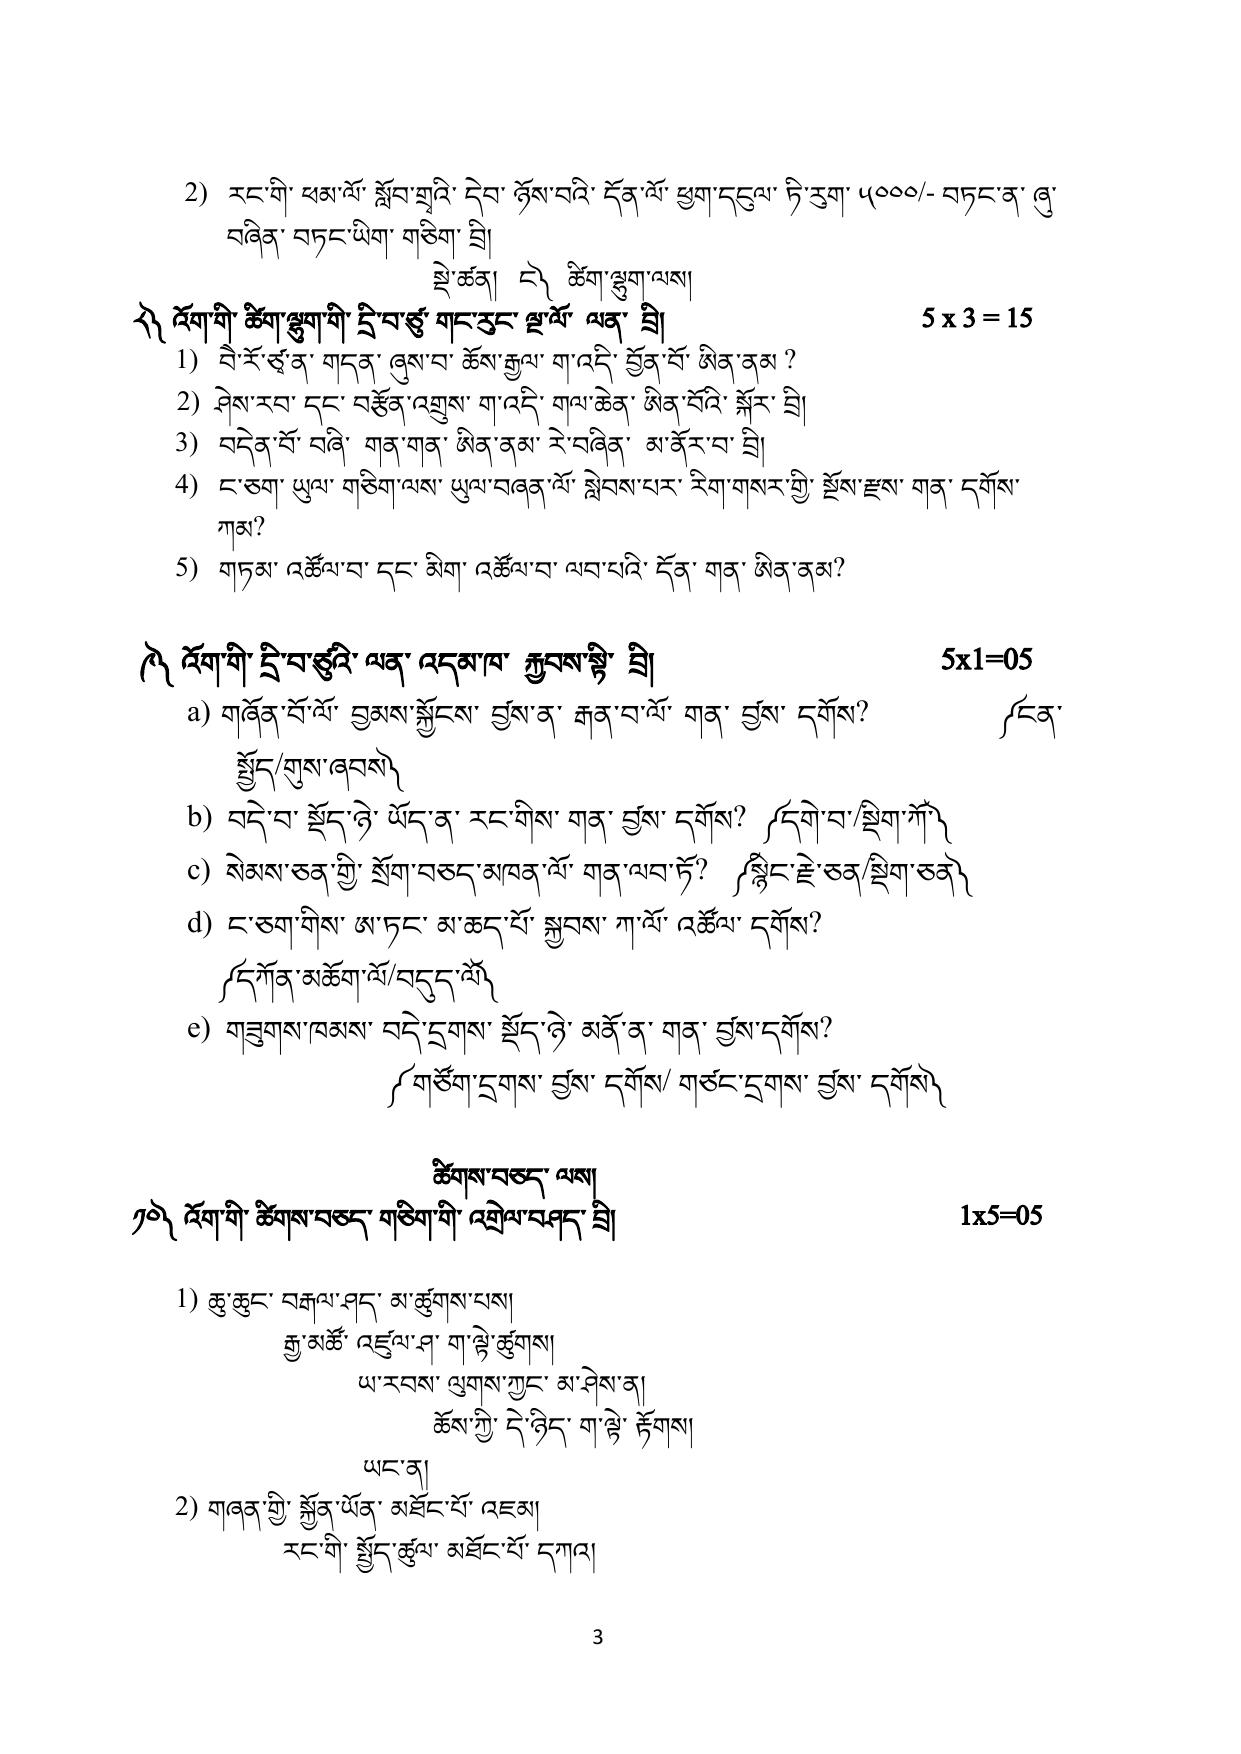 2) རང་གི་ ཕམ་ལོ་ སློབ་གྲྭའི་ དེབ་ ཉོས་བའི་ དོན་ལོ་ ཕྱག་དངུལ་ ཏི་རུག་ ༥༠༠༠/- བཏང་ན་ ཞུ་
བཞིན་ བཏང་ཡིག་ གཅིག་ བྲི།
སྡེ་ཚན། ང༽ ཚིག་ལྷུག་ལས།
༨༽ འོག་གི་ ཚིག་ལྷུག་གི་ དྲི་བ་ཙུ་ གང་རུང་ ལྔ་ལོ་ ལན་ བྲི། 5 x 3 = 15
1) བེ་རོ་ཙཱ་ན་ གདན་ ཞུས་བ་ ཆོས་རྒྱལ་ ག་འདི་ བྱོན་བོ་ ཨིན་ནམ ?
2) ཤེས་རབ་ དང་ བརྩོན་འགྲུས་ ག་འདི་ གལ་ཆེན་ ཨིན་བོའི་ སྐོར་ བྲི།
3) བདེན་བོ་ བཞི་ གན་གན་ ཨིན་ནམ་ རེ་བཞིན་ མ་ནོར་བ་ བྲི།
4) ང་ཅག་ ཡུལ་ གཅིག་ལས་ ཡུལ་བཞན་ལོ་ སླེབས་པར་ རིག་གསར་གྱི་ སྔོས་རྫས་ གན་ དགོས་
ཀམ?
5) གཏམ་ འཚོལ་བ་ དང་ མིག་ འཚོལ་བ་ ལབ་པའི་ དོན་ གན་ ཨིན་ནམ?
༩༽ འོག་གི་ དྲི་བ་ཙུའི་ ལན་ འདམ་ཁ་ རྐྱབས་སྟི་ བྲི། 5x1=05
a) གཞོན་བོ་ལོ་ བྱམས་སྐྱོངས་ བྱས་ན་ རྒན་བ་ལོ་ གན་ བྱས་ དགོས? ༼ངན་
སྤྱོད/གུས་ཞབས༽
b) བདེ་བ་ སྡོད་ཉེ་ ཡོད་ན་ རང་གིས་ གན་ བྱས་ དགོས? ༼དགེ་བ་/སྡིག་ཀོ་༽
c) སེམས་ཅན་གྱི་ སྲོག་བཅད་མཁན་ལོ་ གན་ལབ་ཏོ? ༼སྙིང་རྗེ་ཅན/སྡིག་ཅན༽
d) ང་ཅག་གིས་ ཨ་ཏང་ མ་ཆད་པོ་ སྐྱབས་ ཀ་ལོ་ འཚོལ་ དགོས?
༼དཀོན་མཆོག་ལོ/བདུད་ལོ༽
e) གཟུགས་ཁམས་ བདེ་དྲགས་ སྡོད་ཉེ་ མནོ་ན་ གན་ བྱས་དགོས?
༼གཙོག་དྲགས་ བྱས་ དགོས/ གཙང་དྲགས་ བྱས་ དགོས༽
ཚིགས་བཅད་ ལས།
༡༠༽ འོག་གི་ ཚིགས་བཅད་ གཅིག་གི་ འགྲེལ་བཤད་ བྲི། 1x5=05
1) ཆུ་ཆུང་ བརྒལ་ཤད་ མ་ཚུགས་པས།
རྒྱ་མཚོ་ འཛུལ་ཤ་ ག་ལྟེ་ཚུགས།
ཡ་རབས་ ལུགས་ཀྱང་ མ་ཤེས་ན།
ཆོས་ཀྱི་ དེ་ཉིད་ ག་ལྟེ་ རྟོགས།
ཡང་ན།
2) གཞན་གྱི་ སྐྱོན་ཡོན་ མཐོང་པོ་ འཇམ།
རང་གི་ སྤྱོད་ཚུལ་ མཐོང་པོ་ དཀའ།
3